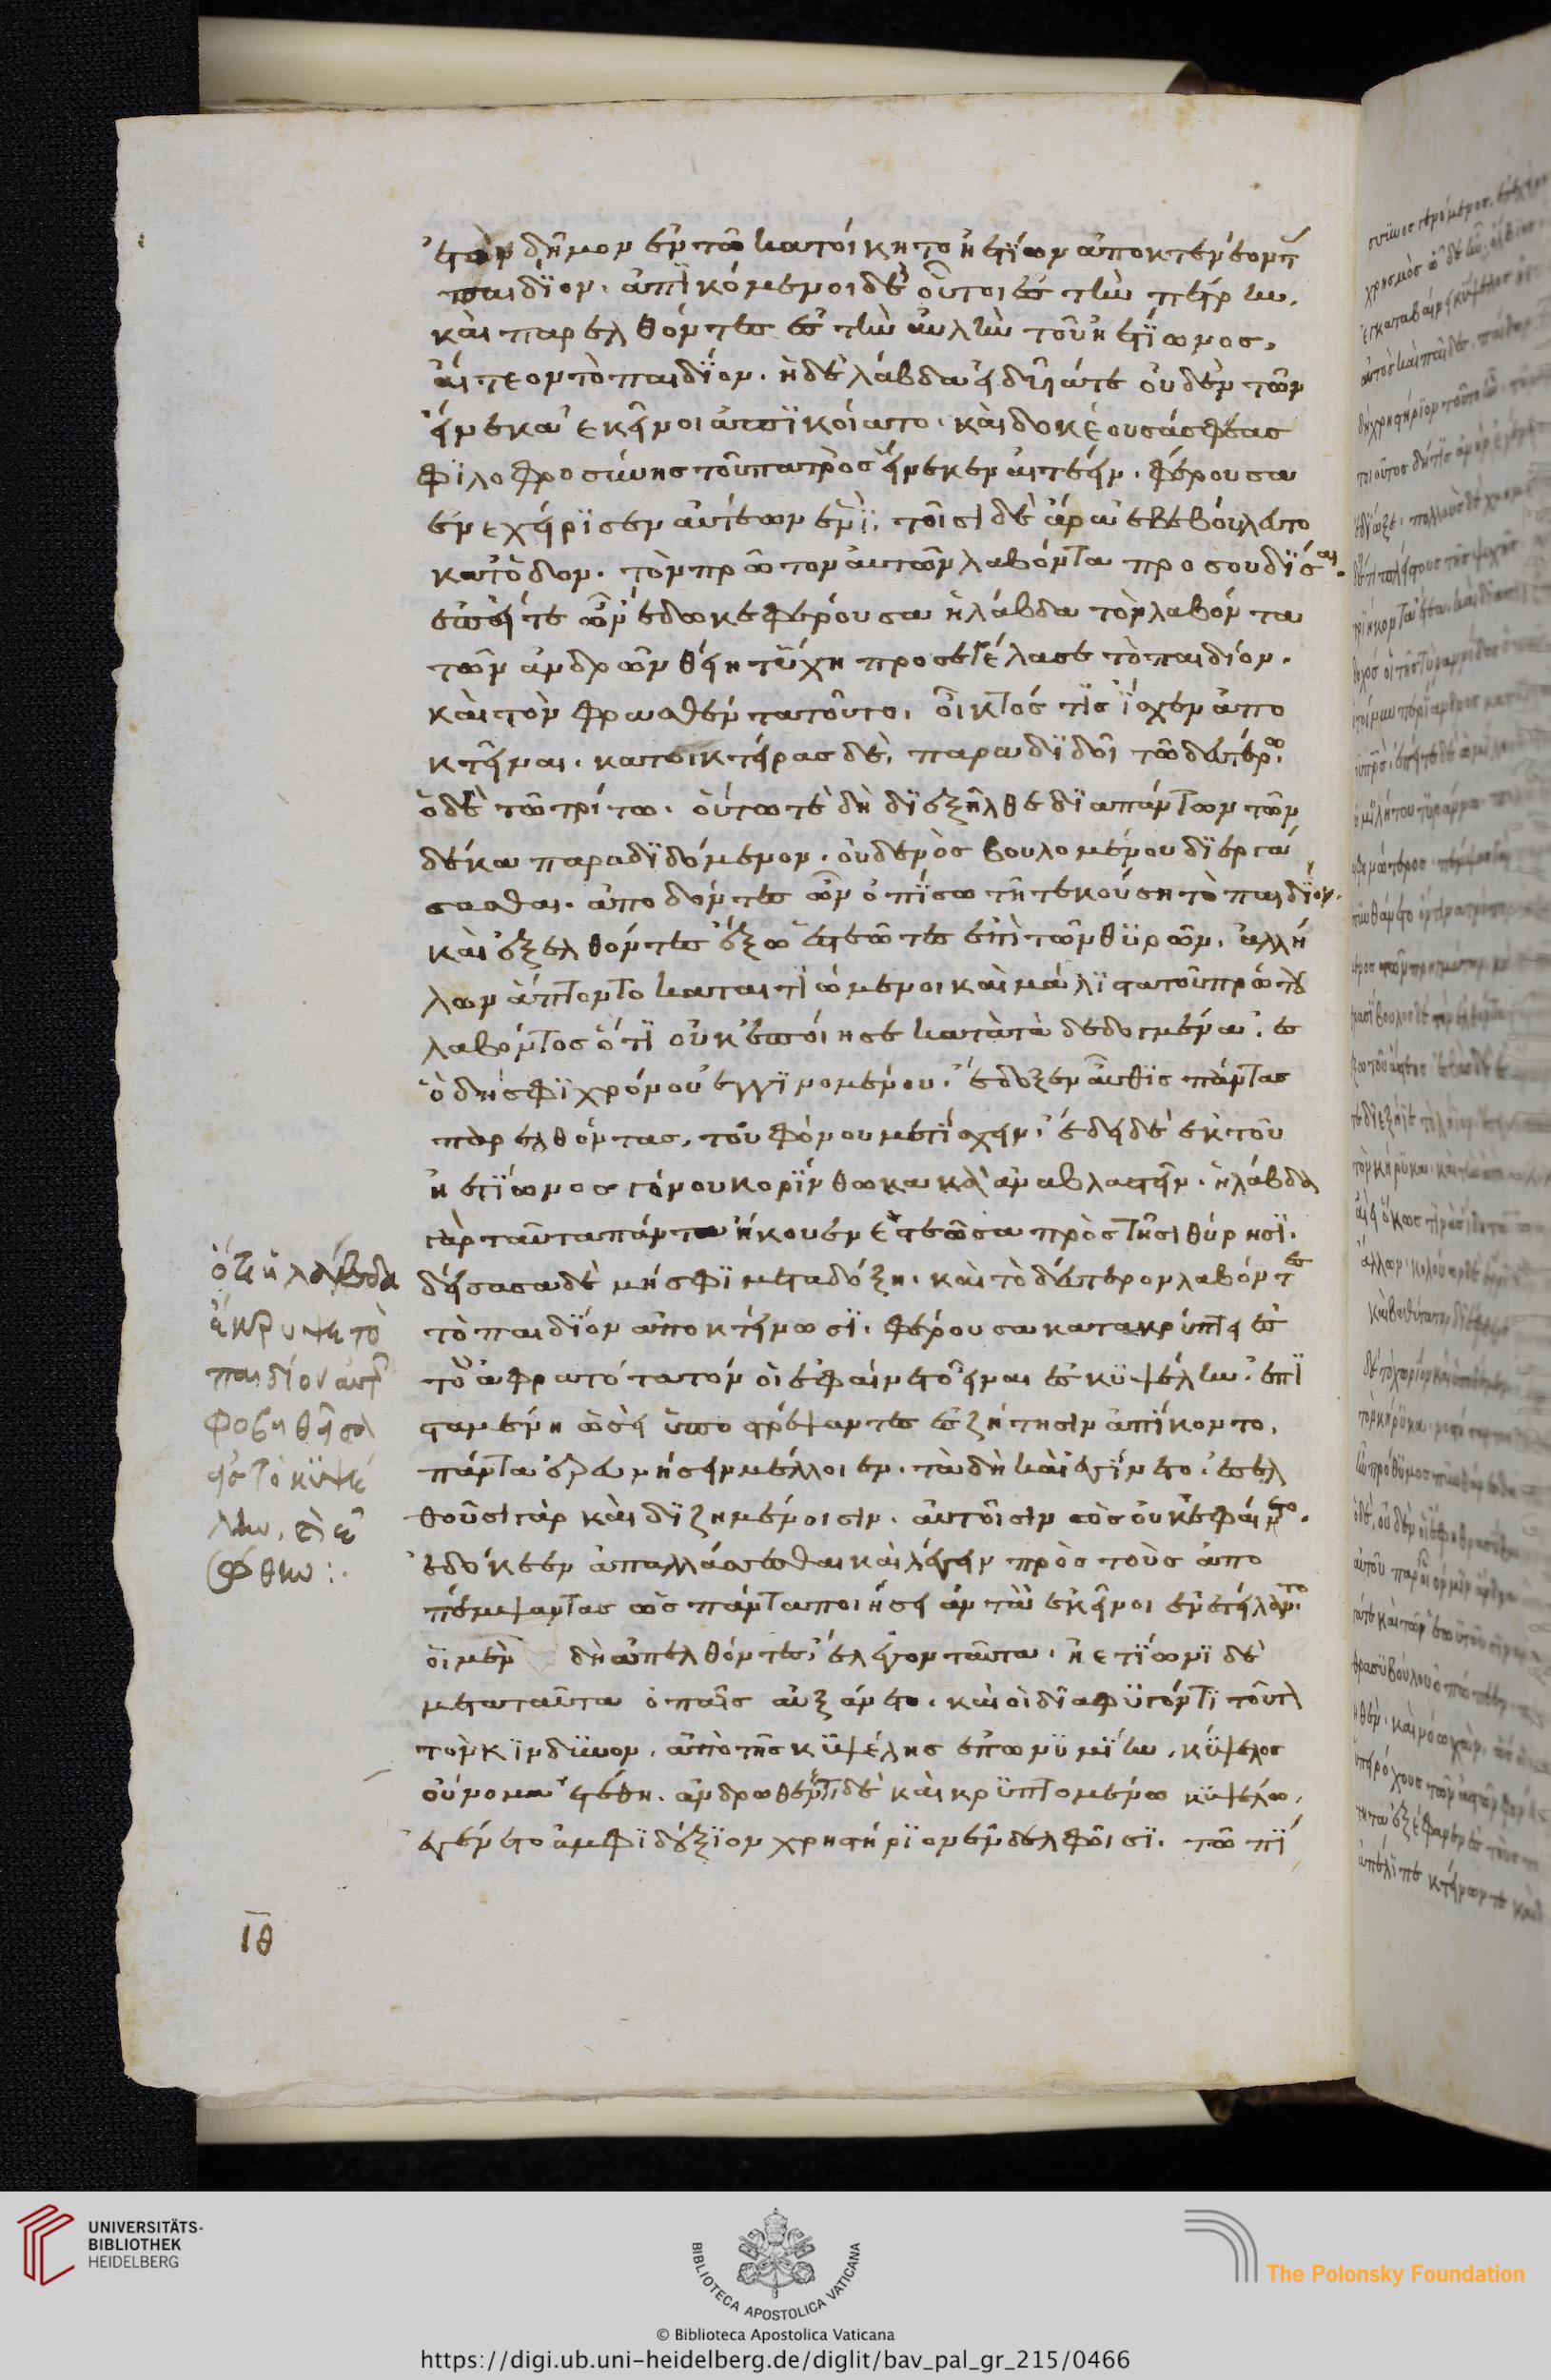 ἐς τὸν δῆμον ἐν τῶ κατοίκητο ἠετίων ἀποκτενέοντ
παιδίον. ἀπικόμενοι δὲ οὗτοι ἐς τὴν πέτρην.
καὶ παρελθόντες ἐς τὴν αὐλὴν τοῦ ἠετίωνος,
αἴτεον τὸ παιδίον. ἡ δὲ λάβδα εἰδυῖά τε οὐδὲν τῶν
εἵνεκα ἐκεῖνοι ἀπικοίατο. καὶ δοκέουσά σφεας
φιλοφροσύνης τοῦ πατρὸς εἵνεκεν αἰτέειν. φέρουσα
ἐνεχείρισεν αὐτέων ἑνὶ. τοῖσι δὲ ἄρα ἐβεβούλευτο
κατ' ὁδὸν. τὸν πρῶτον αὐτῶν λαβόντα προσουδίσαι.
ἐπείτε ὦν ἔδωκε φέρουσα ἡ λάβδα τὸν λαβόντα
τῶν ἀνδρῶν θείη τύχη προσεγέλασε τὸ παιδίον.
καὶ τὸν φρασθέντα τοῦτο, οἶκτός τις ἴσχεν ἀπο
κτεῖναι. κατοικτείρας δὲ, παραδιδοῖ τῶ δευτέρω.
ὁ δὲ τῶ τρίτω. οὕτω τε δὴ διεξῆλθε διὰ πάντων τῶν
δέκα παραδιδόμενον. οὐδενὸς βουλομένου διεργά
σασθαι. ἀποδόντες ὦν ὀπίσω τῆ τεκούση τὸ παιδίον.
καὶ ἐξελθόντες ἔξω ἑστεῶτες ἐπὶ τῶν θυρῶν. ἀλλή
λων ἅπτοντο καταιτιώμενοι καὶ μάλιστα τοῦ πρώτου
λαβόντος ὅτι οὐκ ἐποίησε κατὰ τὰ δεδογμένα. ἐς
ὃ δή σφι χρόνου ἐγγινομένου. ἔδοξεν αὖθις πάντας
παρελθόντας, τοῦ φόνου μετίσχειν. ἔδει δὲ ἐκ τοῦ
ἠετίωνος γόνου κορίνθω κακὰ ἀναβλαστεῖν. ἡ λάβδα
γὰρ ταῦτα πάντα ἤκουεν ἑστεῶσα πρὸς τῆσι θύρησι.
δείσασα δὲ μή σφι μεταδόξη. καὶ τὸ δεύτερον λαβόντες
τὸ παιδίον ἀποκτείνωσι. φέρουσα κατακρύπτει ἐς
τὸ ἀφραστότατόν οἱ ἐφαίνετο εἶναι ἐς κυψέλην. ἐπι
σταμένη ὡς εἰ ὑποστρέψαντες ἐς ζήτησιν ἀπίκοντο.
πάντα ἐρευνήσειν μέλλοιεν. τὰ δὴ καὶ ἐγίνετο. ἐσελ
θοῦσι γὰρ καὶ διζημένοισιν. αὐτοῖσιν ὡς οὐκ ἐφαίνετο.
ἐδόκεεν ἀπαλλάσσεσθαι καὶ λέγειν πρὸς τοὺς ἀπο
πέμψαντας ὡς πάντα ποιήσειαν τὰ ἐκεῖνοι ἐνετείλαντο.
οἱ μὲν δὴ ἀπελθόντες ἔλεγον ταῦτα. ἠετίωνι δὲ
μετὰ ταῦτα ὁ παῖς αὐξάνετο. καὶ οἱ διαφυγόντι τοῦτον
τὸν κίνδυνον. ἀπὸ τῆς κυψέλης ἐπωνυμίην. κύψελος
οὔνομα ἐτέθη. ἀνδρωθέντι δὲ καὶ κρυπτομένω κυψέλω.
ἐγένετο ἀμφιδέξιον χρηστήριον ἐν δελφοῖσι. τῶ πί
ὅτι ἡ λάβδα
ἔκρυψε τὸ
παιδίον αὐτῆς
φοβηθεῖσα
εἰς τὸ κυψέ
λην.
ιθ
UNIVERSITÄTS-
BIBLIOTHEK
HEIDELBERG
BIBLIOTECA APOSTOLICA VATICANA
The Polonsky Foundation
© Biblioteca Apostolica Vaticana
https://digi.ub.uni-heidelberg.de/diglit/bav_pal_gr_215/0466